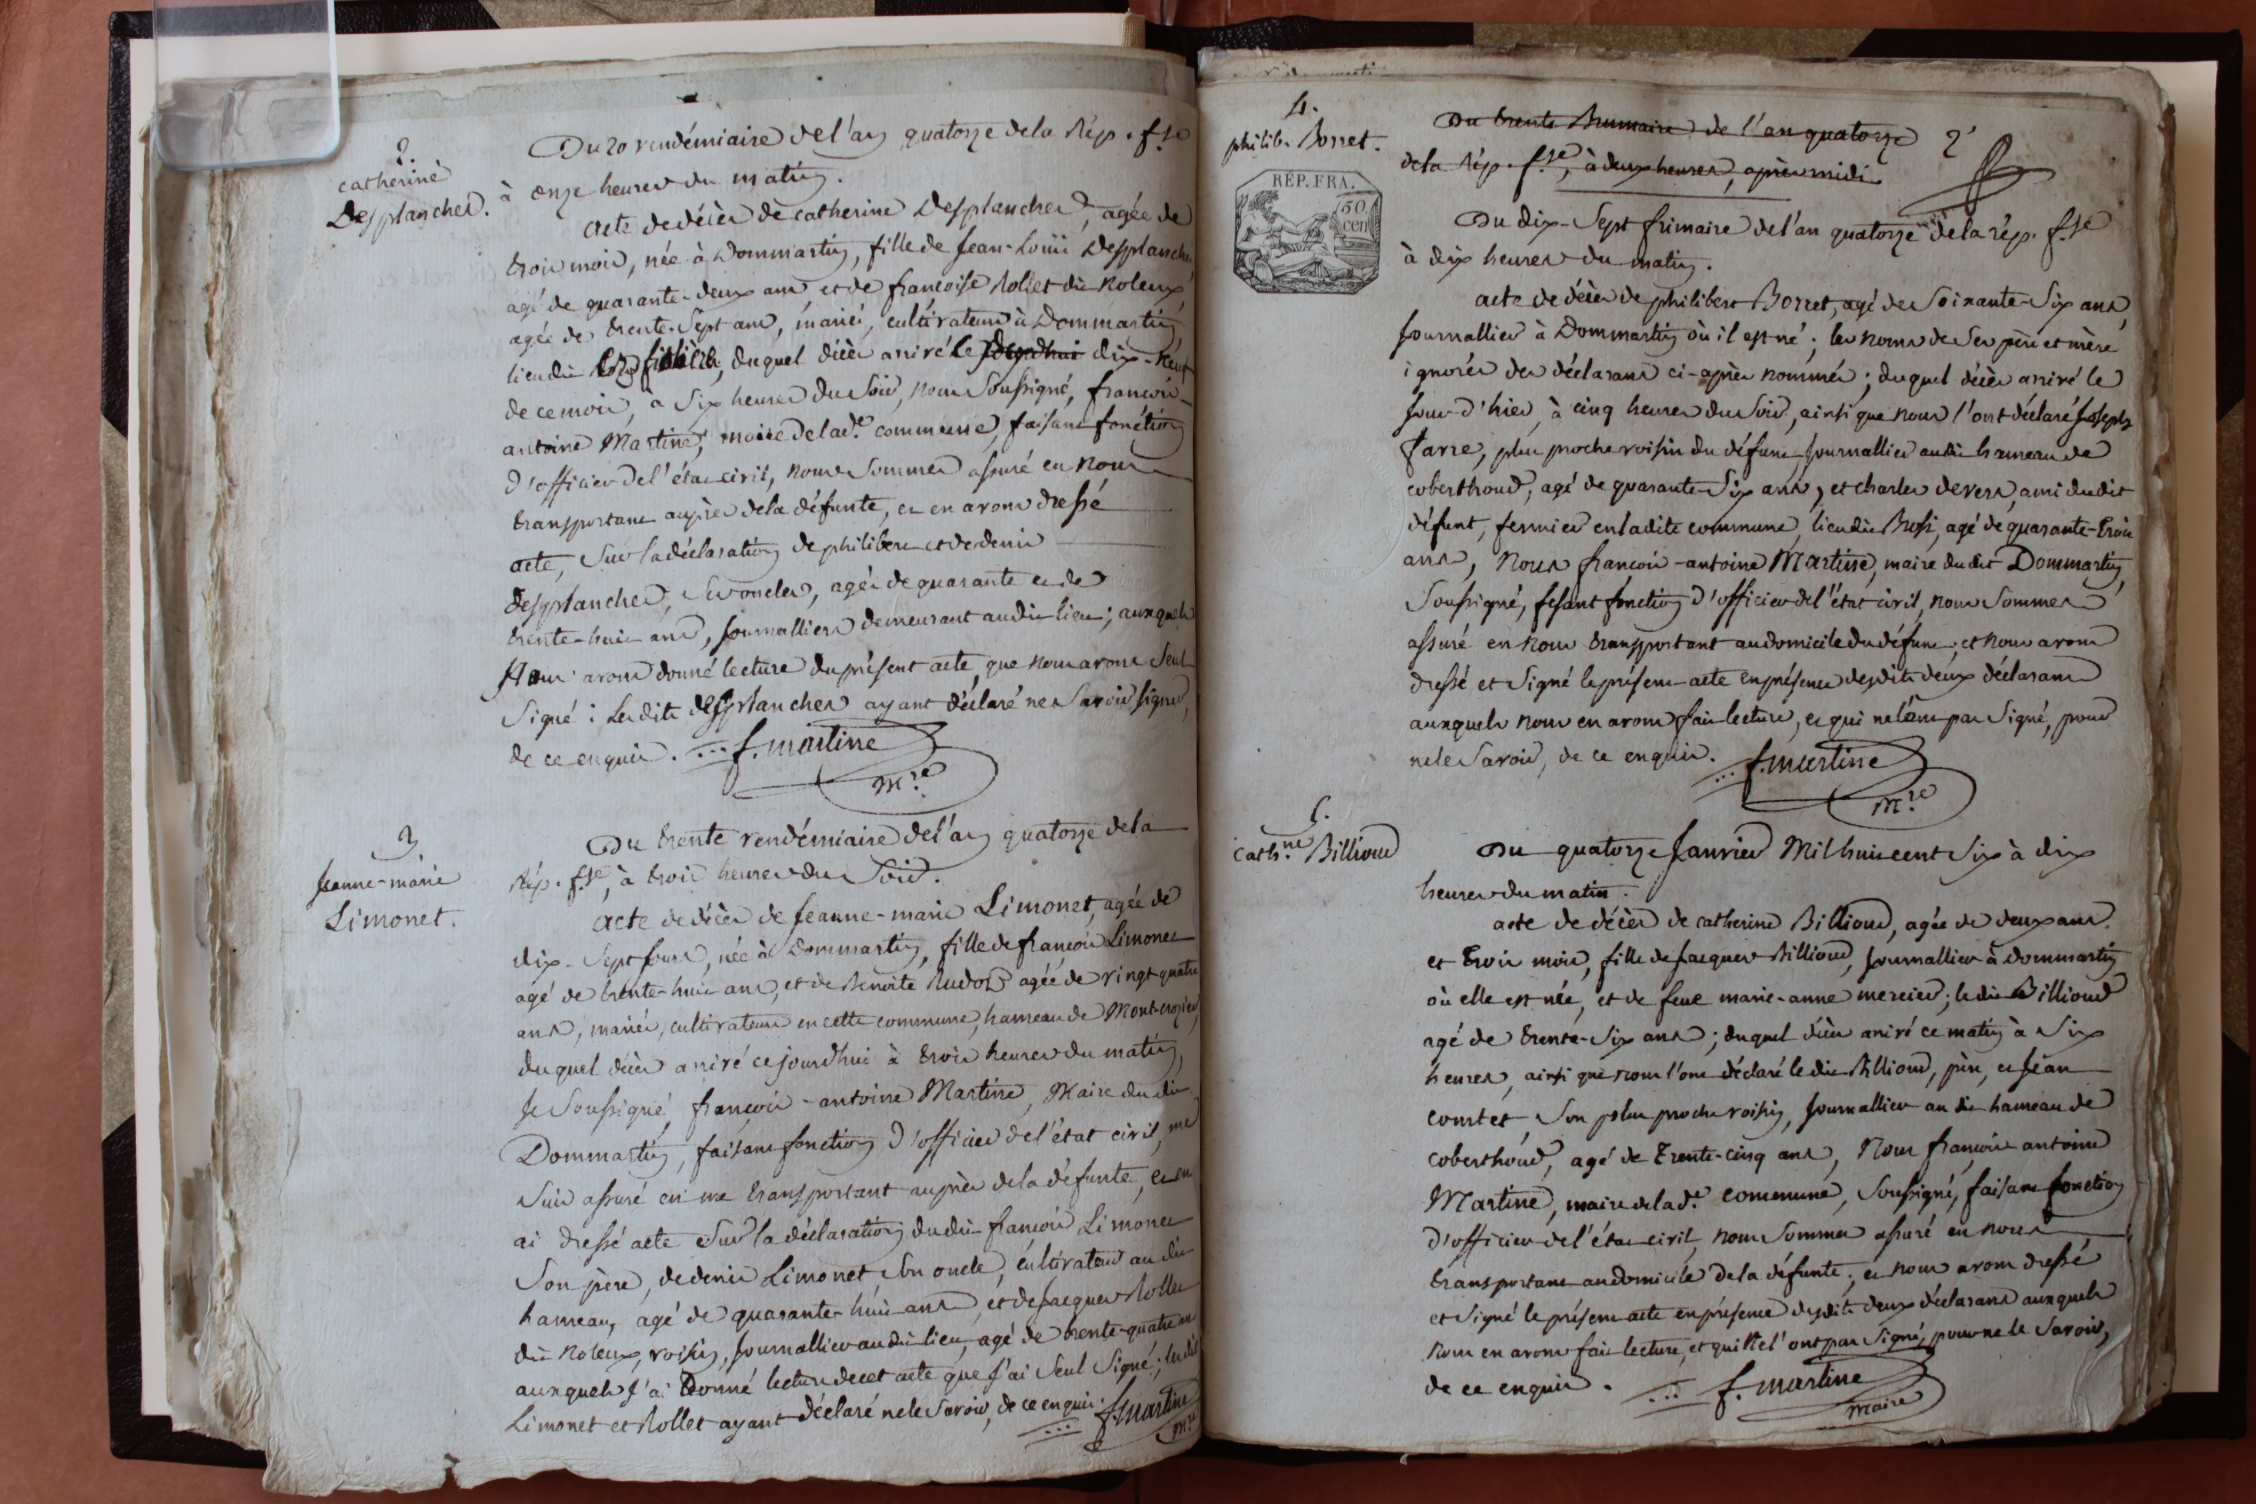 2.
catherine
Desplanches.
Du 20 vendémiaire de l'an quatorze de la Rép. f.se
à onze heures du matin.
acte de décès de catherine Desplanches, agée de
trois mois, née à Dommartin, fille de Jean-Louis Desplanches,
agé de quarante-deux ans, et de francoise Rollet dit Noleux,
agée de trente-sept ans, mariés, cultivateurs à Dommartin
lieu dit duquel décès arrivé le jourdhui dix-neuf
de ce mois, à six heures du soir, nous soussigné, francois-
antoine Martine, maire de lad.e commune, faisant fonction
d'officier de l'état civil, nous sommes assuré en nous
transportant auprès de la défunte, et en avons dressé
acte, sur la déclaration de philibert et de denis
desplanches, ses oncles, agés de quarante et de
trente-huit ans, journalliers demeurant audit lieu; auxquels
Nous avons donné lecture du présent acte, que nous avons seul
signé: Lesdits desplanches ayant déclaré ne savoir signer,
de ce enquis. f. martine
m.re
3
Jeanne-marie
Limonet.
Du trente vendémiaire de l'an quatorze de la
Rép. f.se, à trois heures du soir.
acte de décès de Jeanne-marie Limonet, agée de
dix-sept jours, née à Dommartin, fille de francois Limonet
agé de trente-huit ans, et de Benoite Rudos agée de vingt quatre
ans, mariés, cultivateurs en cette commune, hameau de Mont-crozier,
duquel décès arrivé ce jourdhui à trois heures du matin,
Je soussigné, francois-antoine Martine, Maire dudit
Dommartin, faisant fonction d'officier de l'état civil, me
suis assuré en me transportant auprès de la défunte, et en
ai dressé acte sur la déclaration dudit francois Limonet
son père, de denis Limonet son oncle, cultivateur audit
hameau, agé de quarante-huit ans, et de Jacques Rollet
dit Noleux, voisin, journallier audit lieu, agé de trente-quatre ans
auxquels j'ai Donné lecture de cet acte que j'ai seul signé; lesdits
Limonet et Rollet ayant déclaré ne le savoir, de ce enquis. f. martine
m.re
4.
philib. Borret.
RÉP. FRA.
50
cen
Du trente Brumaire de l'an quatorze
de la Rép. f.se, à deux heures, après midi
Du dix-sept frimaire de l'an quatorze de la rép. f.se
à dix heures du matin.
acte de décès de philibert Borret, agé de soixante-six ans,
journallier à Dommartin où il est né; les noms de ses père et mère
ignorés des déclarans ci-après nommés; duquel décès arrivé le
jour d'hier, à cinq heures du soir, ainsi que nous l'ont déclaré Joseph
farre, plus proche voisin du défunt, journallier audit hameau de
coberthoud, agé de quarante-six ans, et charles devers, ami dudit
défunt, fermier en ladite commune, lieu dit Rossi, agé de quarante-trois
ans, Nous francois-antoine Martine, maire dudit Dommartin,
soussigné, fesant fonction d'officier de l'état civil, nous sommes
assuré en nous transportant au domicile du défunt; et nous avons
dressé et signé le présent acte en présence desdits deux déclarans
auxquels nous en avons fait lecture, et qui ne l'ont pas signé, pour
ne le savoir, de ce enquis. f. martine
m.re
5.
cath.ne Billioud
Du quatorze Janvier Mil huit cent six à dix
heures du matin.
acte de décès de catherine Billioud, agée de deux ans.
et trois mois, fille de Jacques Billioud, journallier à dommartin
où elle est née, et de feue marie-anne mercier; ledit Billioud
agé de trente-six ans; duquel décès arrivé ce matin à six
heures, ainsi que nous l'ont déclaré ledit Billioud, père, et Jean
comtet son plus proche voisin, journallier audit hameau de
coberthoud, agé de trente-cinq ans, Nous francois antoine
Martine, maire de lad.e commune, soussigné, faisant fonction
d'officier de l'état civil, nous sommes assuré en nous
transportant au domicile de la défunte; et nous avons dressé
et signé le présent acte en présence desdits deux déclarans auxquels
nous en avons fait lecture, et qui ne l'ont pas signé, pour ne le savoir,
de ce enquis. f. martine
maire